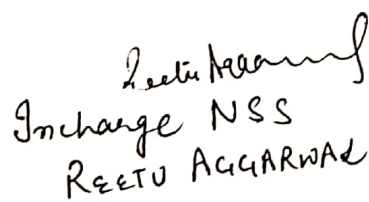 Reetu Aggarwal
Incharge NSS
REETU AGGARWAL